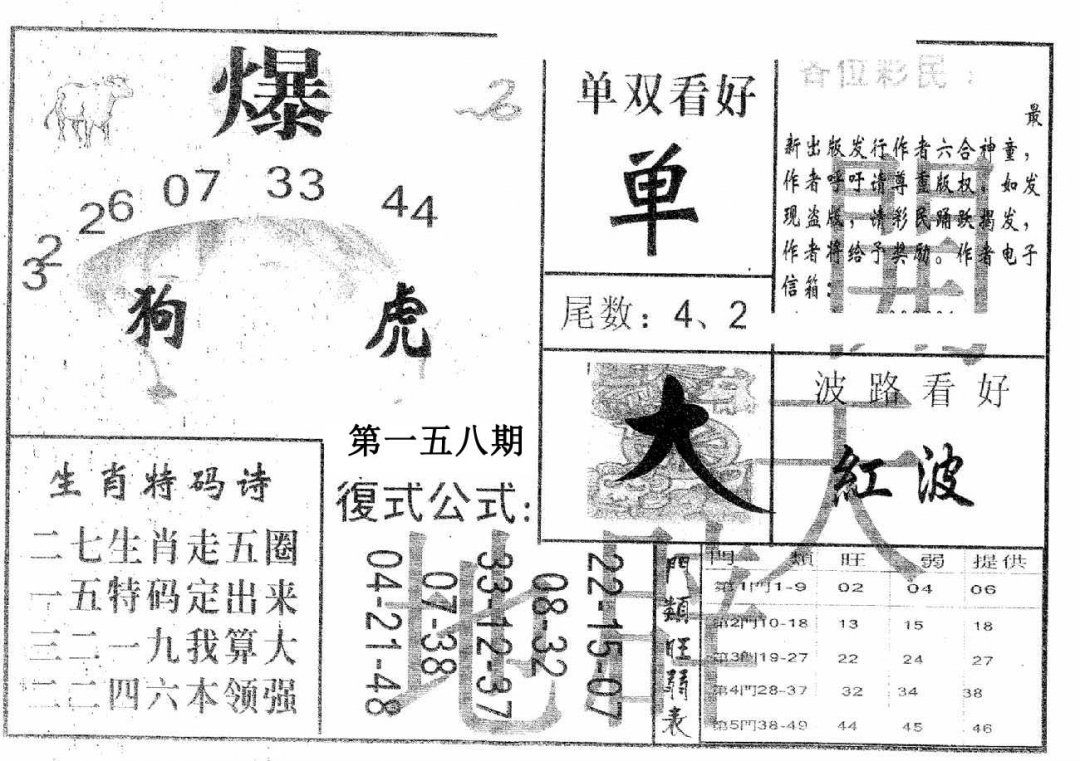 爆
26 07 33 44
32
狗 虎
单双看好
单
尾数：4、2
各位彩民：
最
新出版发行作者六合神童，
作者呼吁请尊重版权。如发
现盗版，请彩民踊跃揭发，
作者将给予奖励。作者电子
信箱：
大
波路看好
紅波
第一五八期
復式公式:
04-21-48
07-38
33-12-37
08-32
22-15-07
生肖特码诗
二七生肖走五圈
一五特码定出来
三二一九我算大
二二四六本领强
門類旺弱表
門 類 旺 弱 提供
第1門1-9 02 04 06
第2門10-18 13 15 18
第3門19-27 22 24 27
第4門28-37 32 34 38
第5門38-49 44 45 46